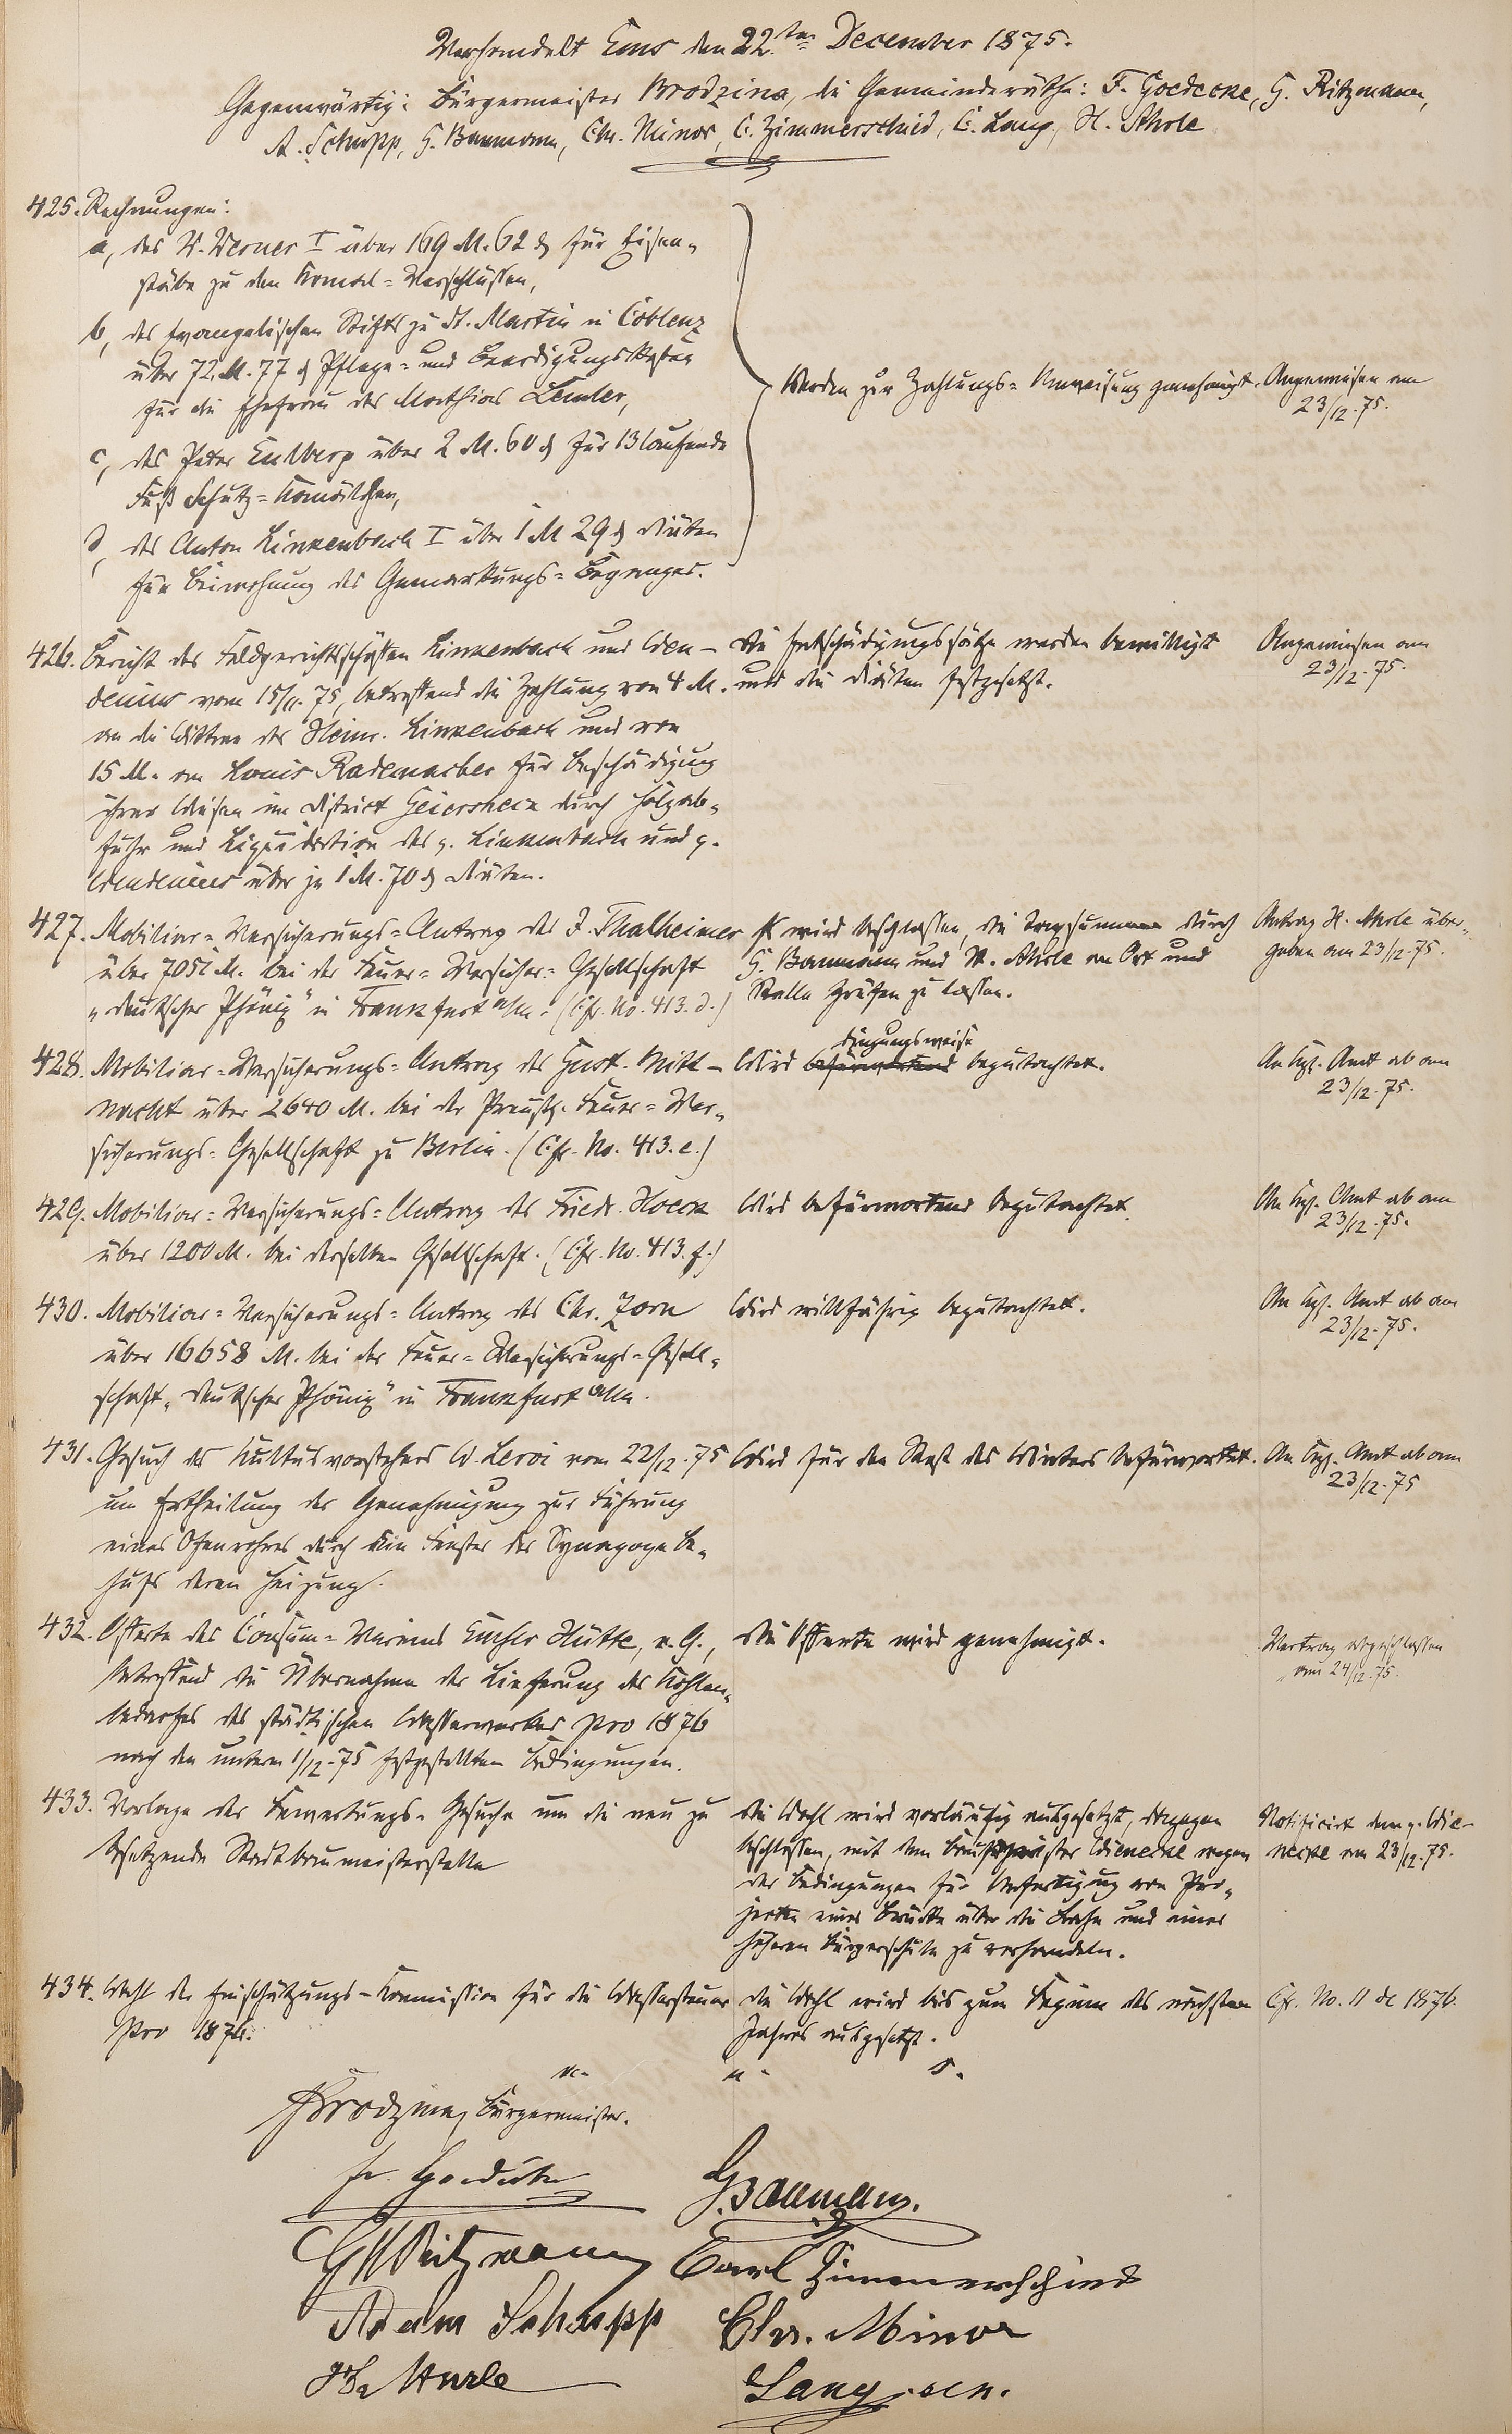 Verhandelt Ems den 22.ten December 1875.
Gegenwärtig: Bürgermeister Brodzina, die Gemeinderäthe: F. Goedecke, G. Ritzmann,
A. Schupp, G. Baumann, Chr. Minor, C. Zimmerschied, C. Lang, H.
425. Rechnungen:
a, des W. Werner I über 169 M. 62 ₰ für Eisen-
stäbe zu den Kanal-Verschlüssen,
b, des Evangelischen Stifts zu St. Martin in Coblenz
über 72 M. 77 ₰ Pflege- und Beerdigungskosten
für die Ehefrau des Mathias
c, des Peter über 2 M. 60 ₰ für 13 laufende
Fuß Schutz-
d, des Anton Linkenbach I über 1 M 29 ₰ Diäten
für Beiwohnung des Gemarkungs-Begangs.
Werden zur Zahlungs-Anweisung genehmigt.
Angewiesen am
23/12.75.
426. Bericht der Feldgerichtsschöffen Linkenbach und Wen-
denius vom 15/11.75, betreffend die Zahlung von 4 M.
an die Wittwe des Heinr. Linkenbach und von
15 M. an Louis Rademacher für Beschädigung
ihrer Wiesen im District durch Holzab-
fuhr und Liquidation des p. Linkenbach und p.
Wendenius über je 1 M. 70 ₰ Diäten.
Die Entschädigungssätze werden bewilligt
und die Diäten festgesetzt.
Angewiesen am
23/12.75.
427. Mobiliar-Versicherungs-Antrag des J. Thalheimer
über 7051 M. bei der Feuer-Versicher.-Gesellschaft
„Deutscher Phönix" in Frankfurt a/M. (Cfr. No. 413. d.)
Es wird beschlossen, die Taxsumme durch
G. Baumann und H. an Ort und
Stelle prüfen zu lassen.
Antrag H. über-
geben am 23/12.75.
428. Mobiliar-Versicherungs-Antrag des Gust. Mitt-
nacht über 2640 M. bei der Preuß. Feuer-Ver-
sicherungs-Gesellschaft zu Berlin. (Cfr. No. 413. e.)
dingungsweise
Wird befürwortend begutachtet.
An Kgl. Amt ab am
23/12.75.
429. Mobiliar-Versicherungs-Antrag des Friedr. Hoeck
über 1200 M. bei derselben Gesellschaft. (Cfr. No. 413. f.)
Wird befürwortend begutachtet.
An Kgl. Amt ab am
23/12.75.
430. Mobiliar-Versicherungs-Antrag des Chr. Zorn
über 16658 M. bei der Feuer-Versicherungs-Gesell-
schaft „Deutscher Phönix" in Frankfurt a/M.
Wird willfährig begutachtet.
An Kgl. Amt ab am
23/12.75.
431. Gesuch des Kultusvorstehers W. Leroi vom 22/12.75
um Ertheilung der Genehmigung zur Führung
eines Ofenrohres durch ein Fenster der Synagoge be-
hufs deren Heizung.
Wird für den Rest des Winters befürwortet.
An Kgl. Amt ab am
23/12.75
432. Offerte des Consum-Vereins Emser Hütte, e. G.,
betreffend die Übernahme der Lieferung des Kohlen-
bedarfes des städtischen Wasserwerkes pro 1876
nach den unterm 1/12.75 festgestellten Bedingungen.
Die Offerte wird genehmigt.
Vertrag abgeschlossen
am 24/12.75.
433. Vorlage der Bewerbungs-Gesuche um die neu zu
besetzende Stadtbaumeisterstelle
Die Wahl wird vorläufig ausgesetzt, dagegen
beschlossen, mit dem Wienecke wegen
der Bedingungen für Anfertigung von Pro-
jecten einer Brücke über die Lahn und einer
höheren Bürgerschule zu verhandeln.
Notificirt dem p. Wie-
necke am 23/12.75.
434. Wahl der Einschätzungs-Kommission für die Wassersteuer
pro 1876.
Die Wahl wird bis zum Beginn des nächsten
Jahres ausgesetzt.
Cfr. No. 11 de 1876.
v. u. s.
Brodzina, Bürgermeister.
Fr. Goedecke
G. Baumann.
G. Ritzmann
Carl Zimmerschied
Adam Schupp
Chr. Minor
Lang